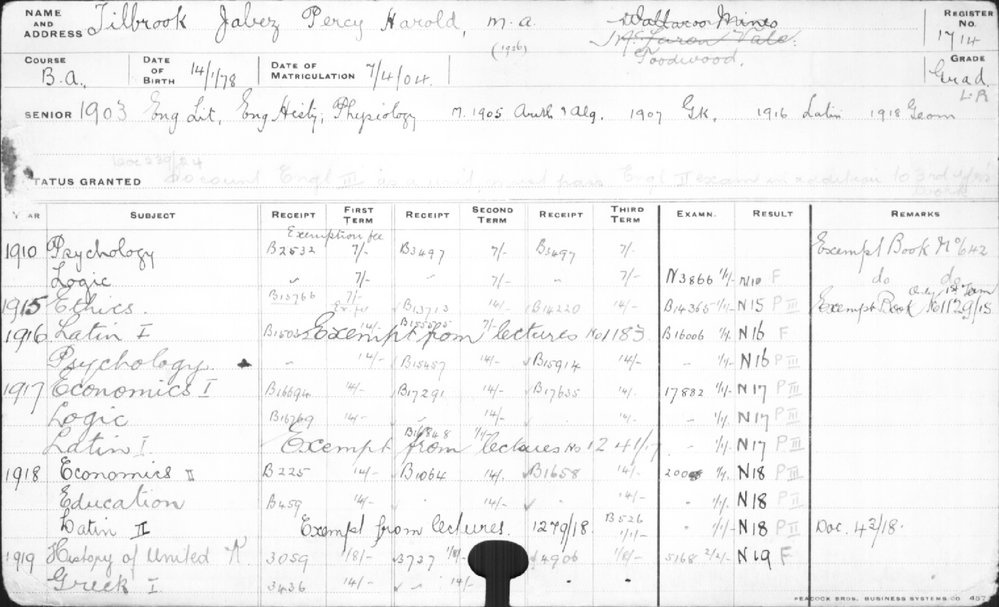 NAME AND ADDRESS Tilbrook Jabez Percy Harold, M.A. (1926) Wallaroo Mines REGISTER No. 1714
McLaren Vale.
Goodwood.
COURSE B.A. DATE OF BIRTH 14/1/78 DATE OF MATRICULATION 7/4/04 GRADE Grad.
L.R
SENIOR 1903 Eng Lit, Eng Histy, Physiology M. 1905 Arith & Alg. 1907 GK. 1916 Latin 1918 Geom
TATUS GRANTED to count Engl III as a unit, must pass Engl II exam in addition to 3rd yr's work
AR SUBJECT RECEIPT FIRST TERM RECEIPT SECOND TERM RECEIPT THIRD TERM EXAMN. RESULT REMARKS
Exemption fee
1910 Psychology B2532 7/- B3497 7/- B3497 7/- Exempt Book No 642
Logic " 7/- " 7/- " 7/- N3866 1/1/- N10 F do do
1915 Ethics. B13766 7/- B13713 14/- B14220 14/- B14365 1/1/- N15 P III Exempt Book No 1129/15 only 1st Term
1916 Latin I Exempt from lectures No 1183 B16006 1/1/- N16 F
Psychology. " 14/- B15457 14/- B15914 14/- " 1/1/- N16 P III
1917 Economics I B16694 14/- B17291 14/- B17635 14/- 17882 1/1/- N17 P III
Logic B16769 14/- " 14/- . 14/- " 1/1/- N17 P III
Latin I. Exempt from lectures No 1241/17 " 1/1/- N17 P III
1918 Economics II B225 14/- B1064 14/- B1658 14/- 1/1/- N18 P III
Education B459 14/- . 14/- . 14/- " 1/1/- N18 P II
Latin II Exempt from lectures. 1279/18. B526 1/1/- " 1/1/- N18 P II Doc. 43/18.
1919 History of United K. 3059 1/8/- 3737 1/8/- 4906 1/8/- 5168 2/2/- N19 F
Greek I 3436 14/- " 14/-
PEACOCK BROS. BUSINESS SYSTEMS CO. 457